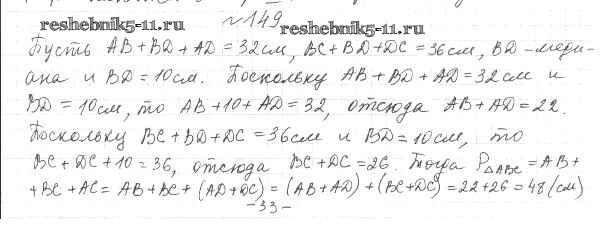 №149
reshebnik5-11.ru reshebnik5-11.ru
Пусть AB+BD+AD=32см, BC+BD+DC=36см, BD-меди-
ана и BD=10см. Поскольку AB+BD+AD=32см и
BD=10см, то AB+10+AD=32, отсюда AB+AD=22.
Поскольку BC+BD+DC=36см и BD=10см, то
BC+DC+10=36, отсюда BC+DC=26. Тогда P△ABC=AB+
+BC+AC=AB+BC+(AD+DC)=(AB+AD)+(BC+DC)=22+26=48(см)
-33-